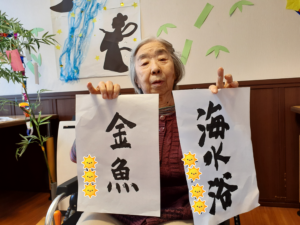 金魚
海水浴